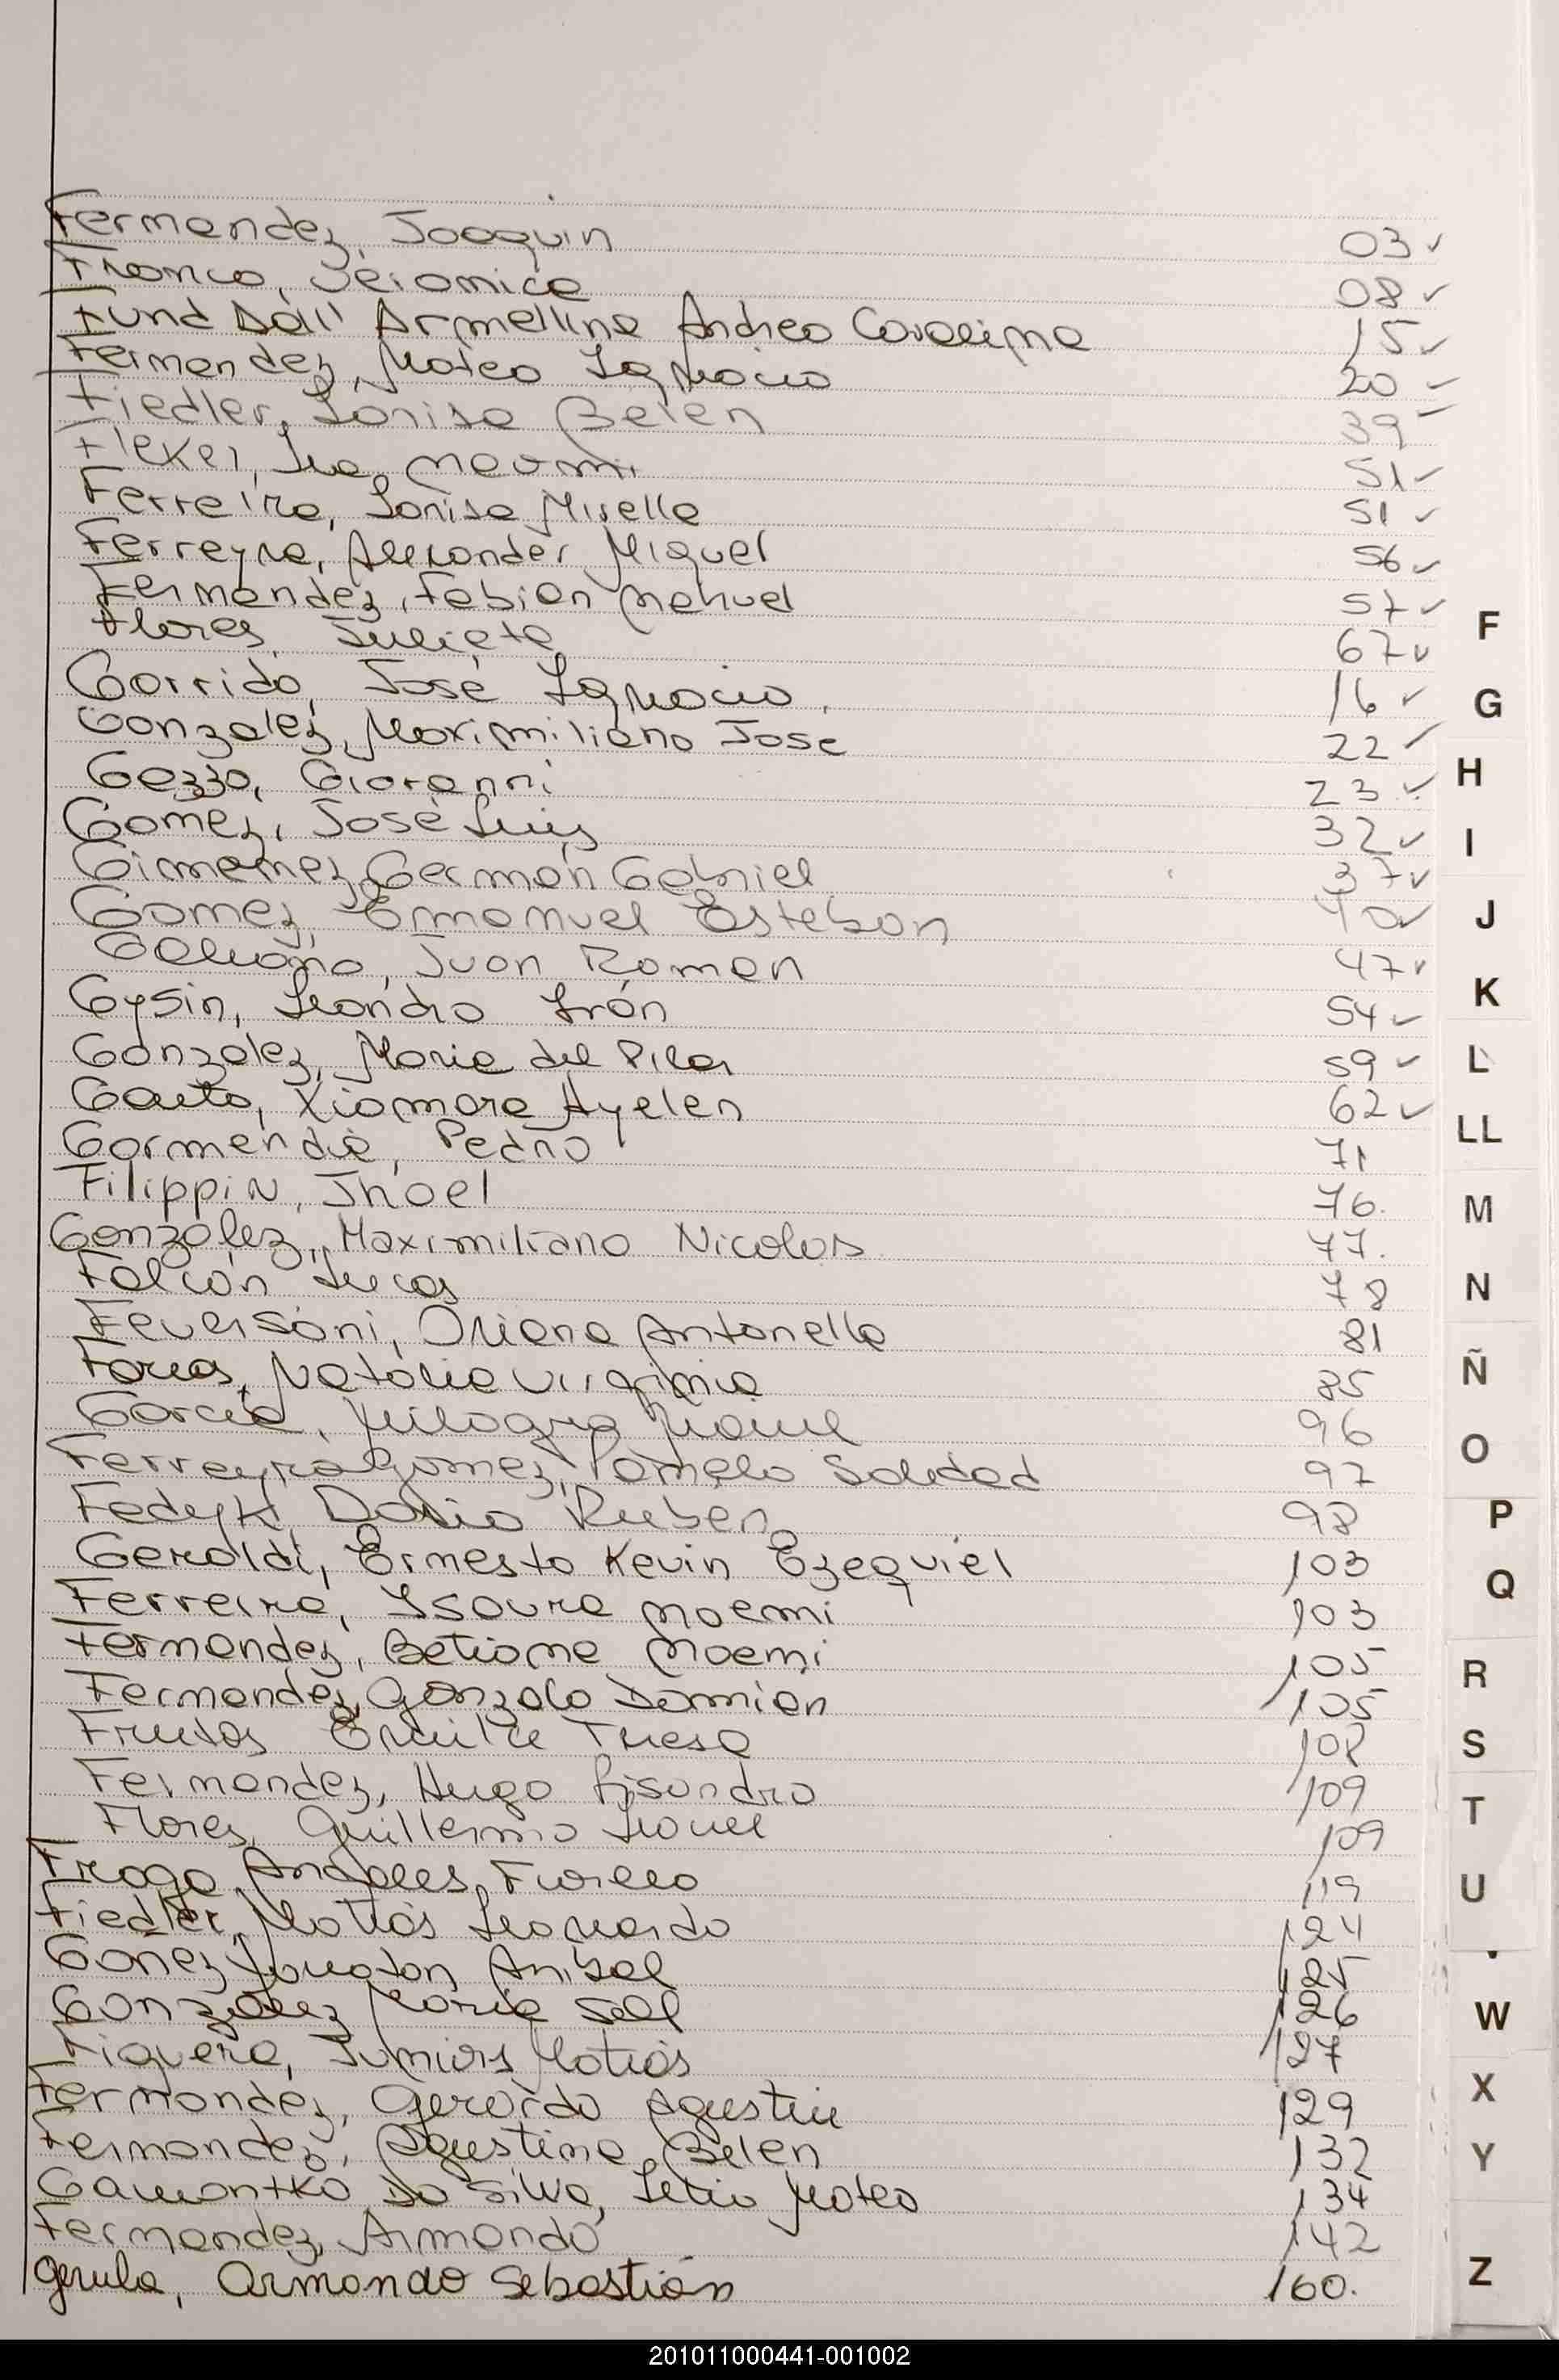 Fernandez, Joaquin 03 ✓
Franco, Veronica 08 ✓
Fund Dall' Armellina Andrea Carolina 15 ✓
Fernandez, Mateo Ignacio 20 ✓
Fiedler, Larisa Belen 39 ✓
Fleker, Lia Naomi 51 ✓
Ferreira, Larisa Mirella 51 ✓
Ferreyra, Alexander Miguel 56 ✓
Fernandez, Fabian Nahuel 57 ✓
Flores, Julieta 67 ✓
Garrido, José Ignacio 16 ✓
Gonzalez, Maximiliano Jose 22 ✓
Gazzo, Giovanni 23 ✓
Gomez, José Luis 32 ✓
Gimenez, Germán Gabriel 37 ✓
Gomez, Emanuel Esteban 40 ✓
Galeano, Juan Roman 47 ✓
Gysin, Leandro Iván 54 ✓
Gonzalez, Maria del Pilar 59 ✓
Gauto, Xiomara Ayelen 62 ✓
Garmendia, Pedro 71
Filippin, Jhoel 76.
González, Maximiliano Nicolas 77.
Falcón Lucas 78
Feversani, Oriana Antonella 81
Farias, Natalia Virginia 85
Garcia, Milagro 96
Ferreyra Gomez, Pamela Soledad 97
Fedyk, Dario Ruben 98
Geraldi, Ernesto Kevin Ezequiel 103
Ferreira, Isaura Noemi 103
Fernandez, Betiana Noemi 105
Fernandez, Gonzalo Damián 105
Frutos Teresa 108
Fernandez, Hugo Lisandro 109
Flores, Guillermo Lionel 109
Fraga Angeles, Fiorella 119
Fiedler, Matias Leonardo 124
Jonatan Anibal 125
González Maria 126
Figuera, Juniors Matias 127
Fernandez, Gerardo Agustin 129
Fernandez, Agustina Belen 132
Da Silva, Mateo 134
Fernandez, Armando 142
Gerula, Armando Sebastián 160.
F
G
H
I
J
K
L
LL
M
N
Ñ
O
P
Q
R
S
T
U
W
X
Y
Z
201011000441-001002